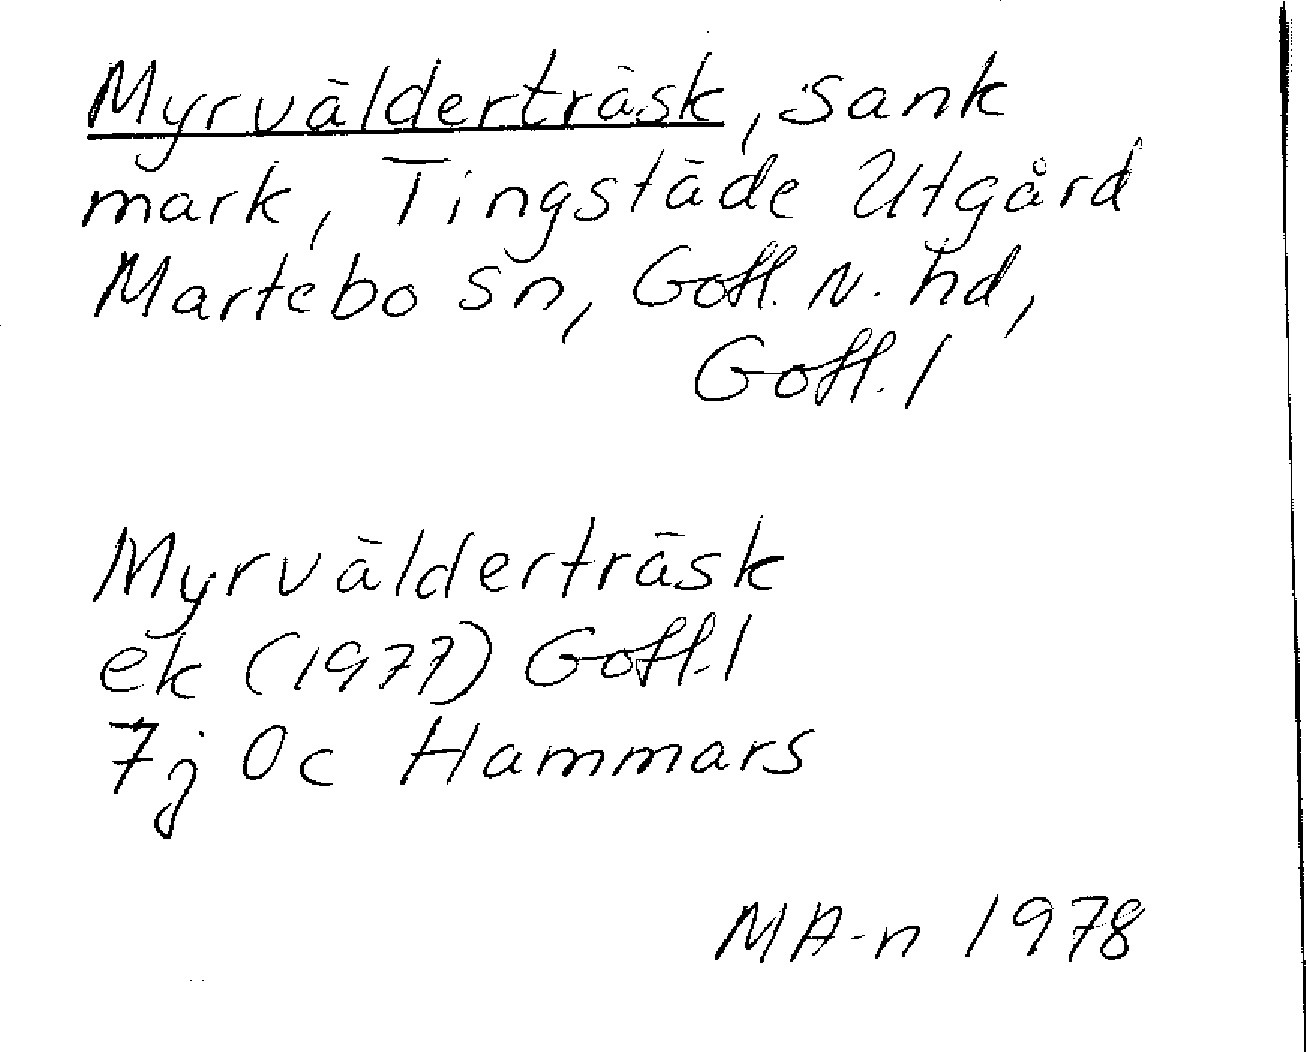 Myrvälderträsk, sank
mark, Tingstäde Utgård
Martebo sn, Gotl. N. hd,
Gotl. l
Myrvälderträsk
ek (1977) Gotl. l
7j 0c Hammars
MA-n 1978